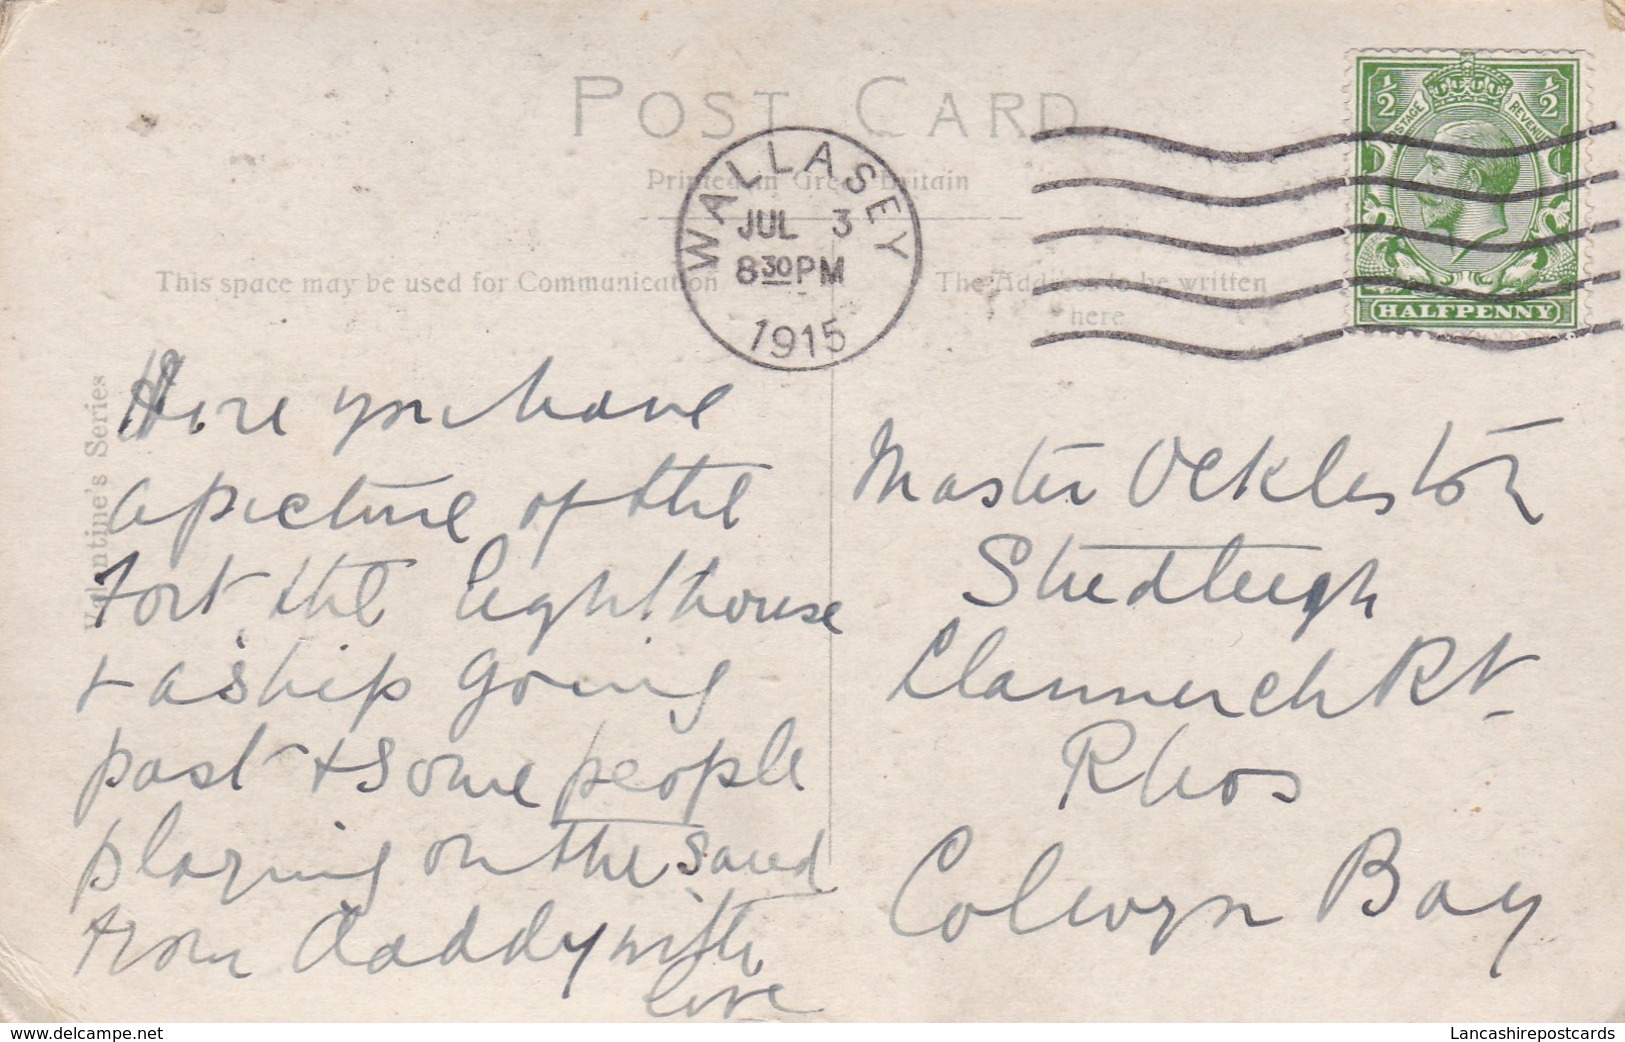 POST CARD
Printed in Great Britain
WALLASEY
JUL 3
8 30 PM
1915
POSTAGE REVENUE
½ ½
HALFPENNY
This space may be used for Communication
The Address to be written
here
Valentine's Series
Here you have
a picture of the
Fort the lighthouse
+ a ship going
past + some people
playing on the sand
from daddy with
love
Master Ockleston
Studleigh
Llannerch Rd
Rhos
Colwyn Bay
delcampe.net
Lancashirepostcards